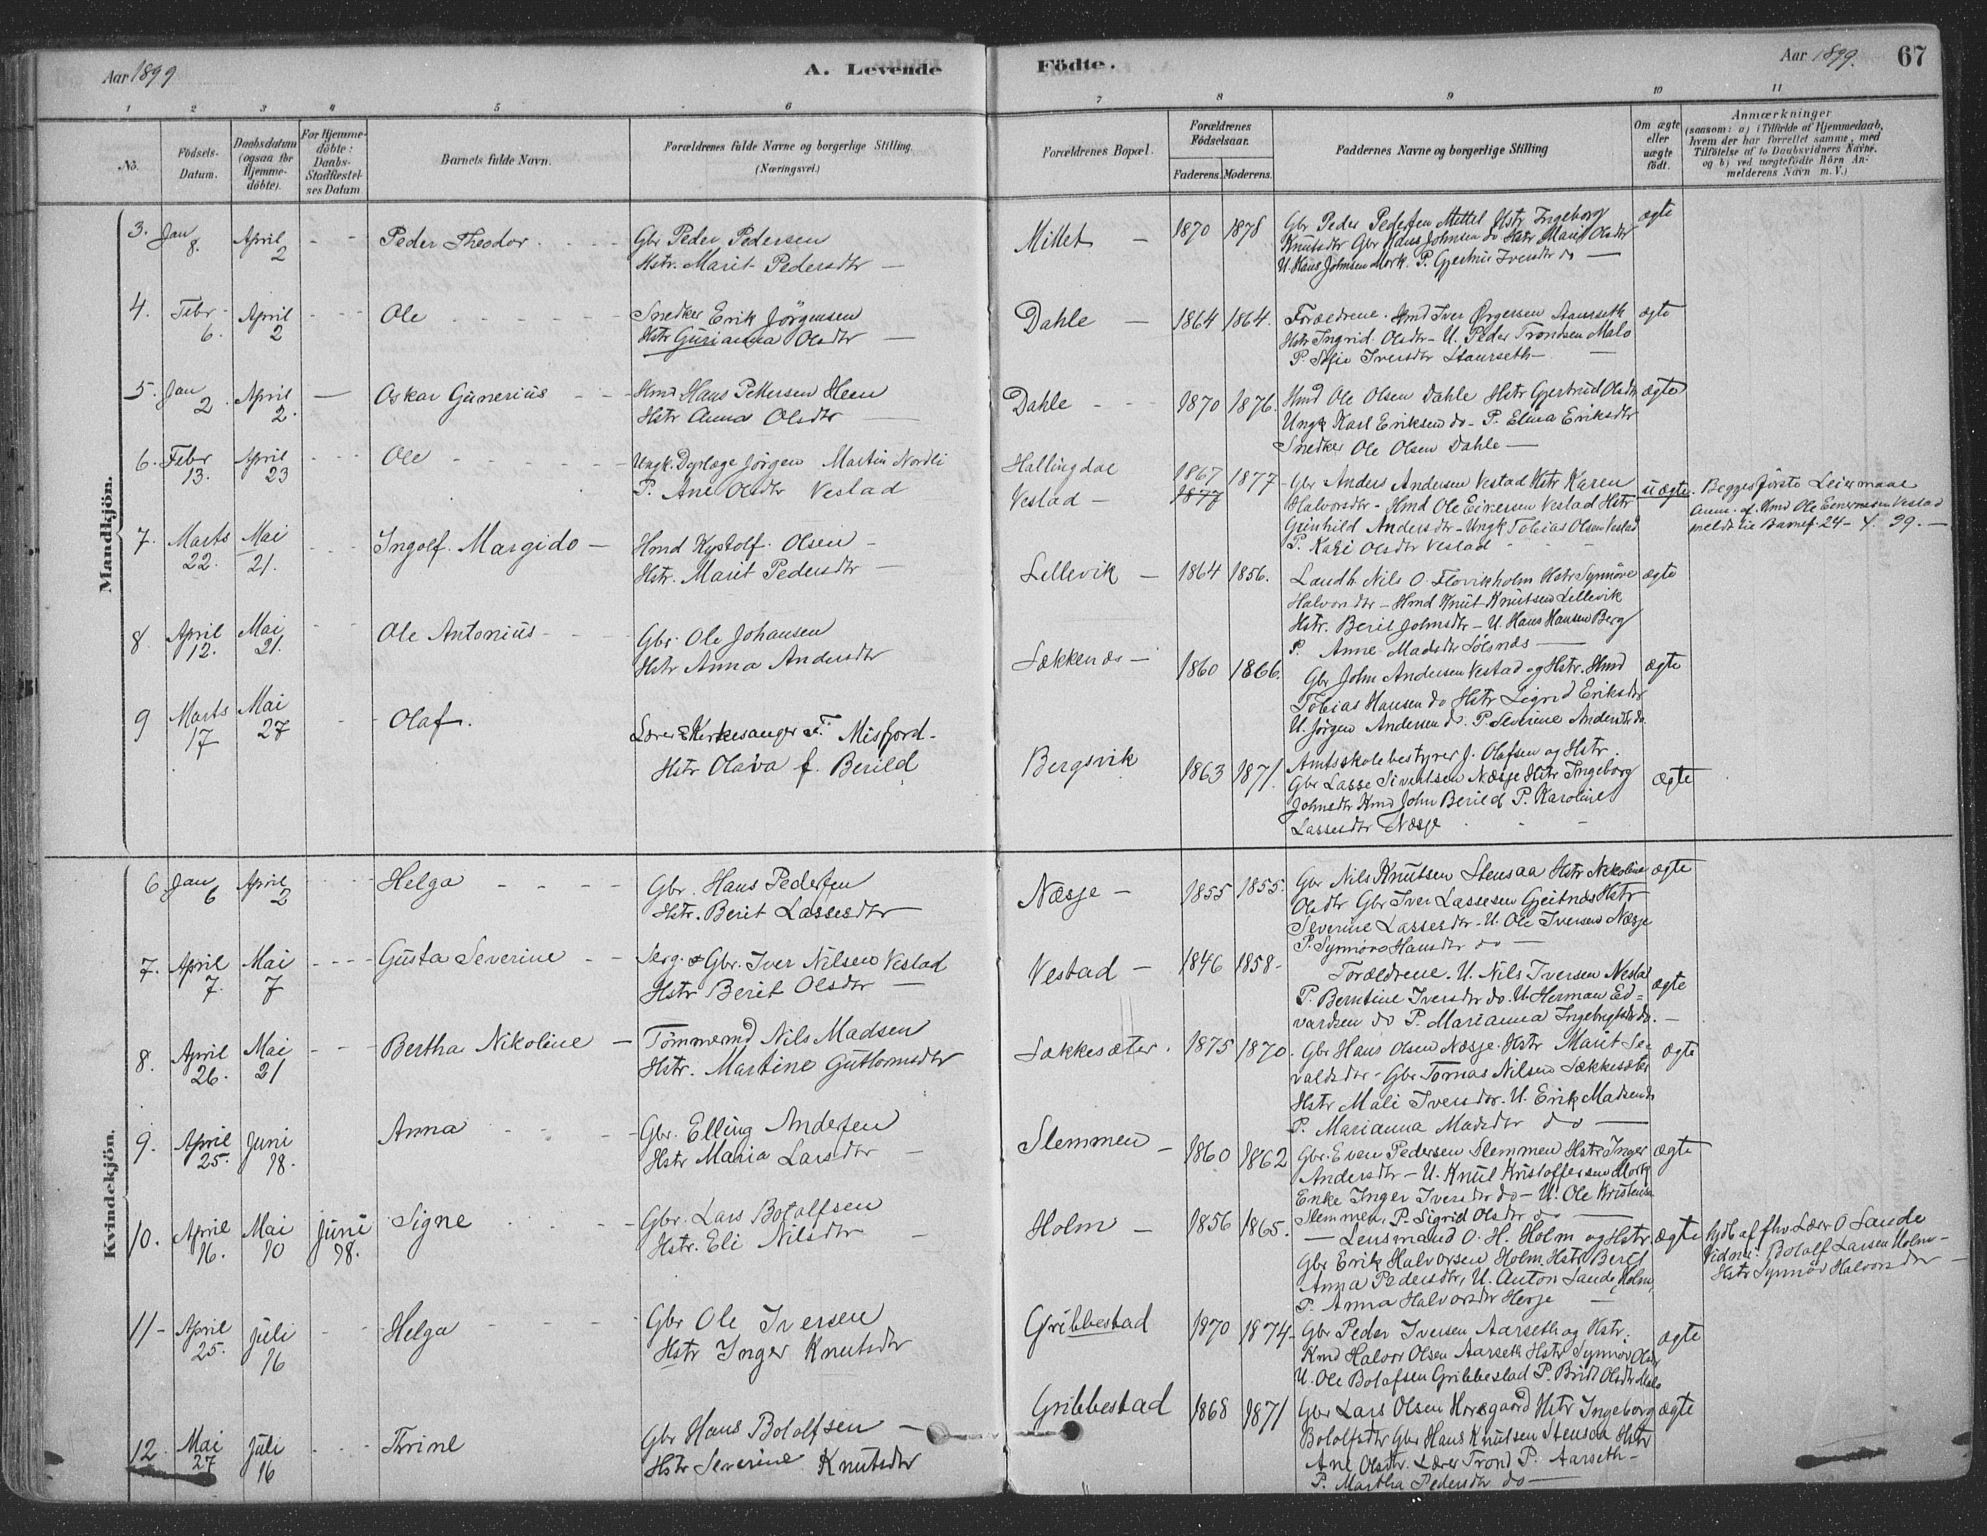 Aar 1899
A. Levende
Födte.
Aar 1899.
67
1 2 3 4 5 6 7 8 9 10 11
No.
Födsels-Datum.
Daabsdatum (ogsaa för Hjemmedöbte).
For Hjemmedöbte: Daabs-Stadfæstelses Datum
Barnets fulde Navn.
Forældrenes fulde Navne og borgerlige Stilling. (Næringsvei.)
Forældrenes Bopæl.
Forældrenes Födselsaar.
Faderens. Moderens.
Faddernes Navne og borgerlige Stilling
Om ægte eller uægte födt.
Anmærkninger
(saasom: a) i Tilfælde af Hjemmedaab, hvem der har forrettet samme, med Tilföielse af to Daabsvidners Navne, og b) ved uægtefödte Börn Anmelderens Navn m. V.)
Mandkjön.
3. Jan 8. April 2 - - Peder Theodor
Gbr Peder Pedersen
Hstr. Marit Pedersdtr —
Mittet — 1870 1878
Gbr Peder Pedersen Mittet Hstr Ingeborg
Knutsdtr Gbr Hans Johnsen do Hstr Marit Olsdtr
U. Hans Johnsen Mork. P. Gjertine Iversdtr do —
ægte
4. Febr 6. April 2 Ole
Snedker Erik Jörgensen
Hstr Gurianna Olsdtr —
Dahle — 1864 1864.
Forældrene. Hmd Iver Ørgersen Staurseth
Hstr Ingrid Olsdtr - U. Peder Trondsen Malo
P. Sofie Iversdtr Staurseth —
ægte
5. Jan 2. April 2. — Oskar Gunerius
Hmd Hans Pettersen Heen
Hstr Anna Olsdtr
Dahle - - 1870 1876.
Hmd Ole Olsen Dahle Hstr Gjertrud Olsdtr
Ungk Karl Eriksen do - P. Elina Eriksdtr
Snedker Ole Olsen Dahle —
ægte
6. Febr 13. April 23 Ole
Ungk. Dyrlæge Jörgen Martin Nordli
P. Ane Olsdtr Vestad
Hallingdal
Vestad — 1867 1877 1877
Gbr Anders Andersen Vestad Hstr Karen
Halvorsdtr - Hmd Ole Einersen Vestad Hstr
Gunhild Andersdtr - Ungk Tobias Olsen Vestad
P. Kari Olsdtr Vestad
uægte.
Begges förste Leiermaal
Anm. af Hmd Ole Einersen Vestad
meldt til Barnef. 24-4. 99. —
7. Marts 22. Mai 21. Ingolf Margido —
Hmd Kystolf Olsen —
Hstr. Marit Pedersdtr —
Lillevik — 1864 1856.
Landh. Nils O. Flovikholm Hstr Synnöve
Halvorsdtr - Hmd Knut Knutsen Lillevik
Hstr. Berit Johnsdtr - U. Hans Hansen Berg
P. Anne Madsdtr Solsnæs —
ægte
8 April 12. Mai 21. Ole Antonius
Gbr. Ole Johansen
Hstr Anna Andersdtr
Sækkenæs — 1860 1866.
Gbr John Andersen Vestad og Hstr. Hmd
Tobias Hansen do Hstr Sigrid Eriksdtr
U. Jörgen Andersen do. P. Severine Andersdtr do
ægte
9 Marts 17 Mai 27 Olaf.
Lærer & Kirkesanger T. Misfjord
Hstr Olava f. Berild
Bergsvik 1863 1871.
Amtsskolebestyrer J. Olafsen og Hstr.
Gbr Lasse Sivertsen Næsje Hstr Ingeborg
Johnsdtr Hmd John Berild P. Karoline
Lassesdtr Næsje
ægte
Kvindekjön.
6. Jan 6 April 2 Helga
Gbr. Hans Pedersen
Hstr. Berit Lassesdtr —
Næsje — 1855 1855.
Gbr Nils Knutsen Stensaa Hstr Nikoline
Olsdtr Gbr Iver Lassesen Gjeitnæs Hstr
Severine Lassesdtr - U. Ole Iversen Næsje
P. Synnöve Hansdtr do —
ægte
7. April 7. Mai 7 Gusta Severine
Serg. & Gbr. Iver Nilsen Vestad
Hstr Berit Olsdtr —
Vestad — 1846 1858.
Forældrene. U. Nils Iversen Vestad
P. Berntine Iversdtr do. U. Herman Ed-
vardsen do P. Marianna Ingebrigtsdtr do. —
ægte
8. April 26. Mai 21 Bertha Nikoline —
Tömmermd Nils Madsen
Hstr. Martine Guttormsdtr
Sækkesæter. 1875 1870.
Gbr Hans Olsen Næsje. Hstr Marit Se-
valdsdtr - Gbr Tomas Nilsen Sækkesæter
Hstr Mali Iversdtr. U. Erik Madsen do
P. Marianna Madsdtr do —
ægte
9. April 25. Juni 18. Anna
Gbr. Elling Andersen
Hstr Maria Larsdtr —
Slemmen — 1860 1862
Gbr. Even Pedersen Slemmen Hstr Inger
Andersdtr — U. Knut Kristoffersen Mork
Enke Inger Iversdtr do — U. Ole Kristensen
Slemmen, P. Sigrid Olsdtr do —
ægte
10. April 16. Mai 10 Juni 18. Signe
Gbr. Lars Botolfsen
Hstr. Eli Nilsdtr —
Holm — 1856 1865.
— Lensmand O. H. Holm og Hstr
Gbr Erik Halvorsen Holm, Hstr Berit
Anna Pedersdtr, U. Anton Sande, Holm,
P. Anna Halvorsdtr Herje —
ægte
hjdb af fhv Lærer O Sande
Vidner: Botolf Larsen Holm —
Hstr Synnöv Halvorsdtr —
11 - April 25. Juli 16 Helga
Gbr Ole Iversen
Hstr Inger Knutsdtr
Gribbestad 1870 1874
Gbr Peder Iversen Aarseth og Hstr.
Kmd Halvor Olsen Aarseth Hstr Synnöv Olsdtr
U. Ole Botolfsen Gribbestad P. Brit Olsdtr Malo
ægte
12 Mai 27 Juli 16 Thrine
Gbr Hans Botolfsen —
Hstr Severine Knutsdtr
Gribbestad 1868 1871
Gbr Lars Olsen Horsgaard Hstr Ingeborg
Botolfsdtr Gbr Hans Knutsen Stensaa Hstr
Ane Olsdtr. Lærer Trond P. Aarseth —
P. Martha Pedersdtr do —
ægte